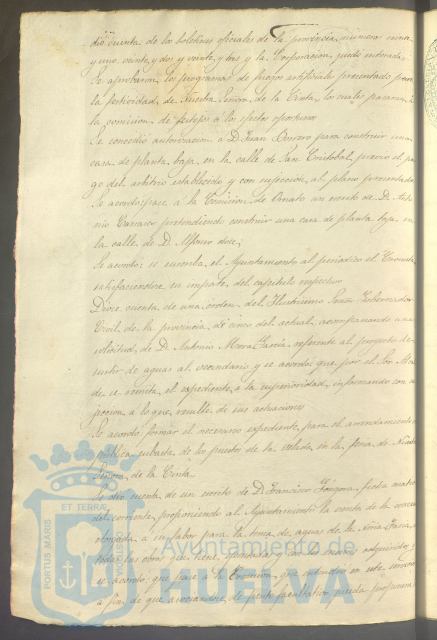 dió cuenta de los boletines oficiales de la provincia, números
y uno, veinte y dos y veinte y tres y la Corporación, quedó enterada.
Se aprobaron los programas de fuegos artificiales presentado para
la festividad de Nuestra Señora de la Cinta, los cuales pasaran á
la comisión de festejos a los efectos oportunos
Se concedió autorización a D. Juan Borrero para construir una
casa de planta baja en la calle de San Cristóbal, previo el pa-
go del arbitrio establecido y con sujeción al plano presentado
Se acordó pase a la Comisión de Ornato un escrito de D. Anto-
nio Carrasco pretendiendo construir una casa de planta baja en
la calle de D. Alfonso doce;
Se acordó: se suscriba el Ayuntamiento al periódico el
satisfaciéndose su importe del capítulo respectivo
Diose cuenta de una orden del Ilustrísimo Señor Gobernador
Civil de la provincia de cinco del actual, acompañando una
solicitud de D. Antonio Mora García, referente al proyecto de
surtir de aguas al vecindario y se acordó: que por el Sor. Alcal-
de se remita el expediente a la superioridad, informando con
a lo que resulte de sus actuaciones
Se acordó formar el necesario expediente para el arrendamiento
pública subasta de los puestos de la velada en la feria de Nuestra
Señora de la Cinta
Se dio cuenta de un escrito de D. Francisco Góngora, fecha cuatro
del corriente, proponiendo al Ayuntamiento la venta de la
otorgada a su favor para la toma de aguas de la
todas las obras que tiene
se acordó: que pase a la Comisión que entiende en este servicio
a fin de que asociandose de perito facultativo pueda
PORTUS MARIS ET TERRÆ CUSTODIA
Ayuntamiento de
HUELVA